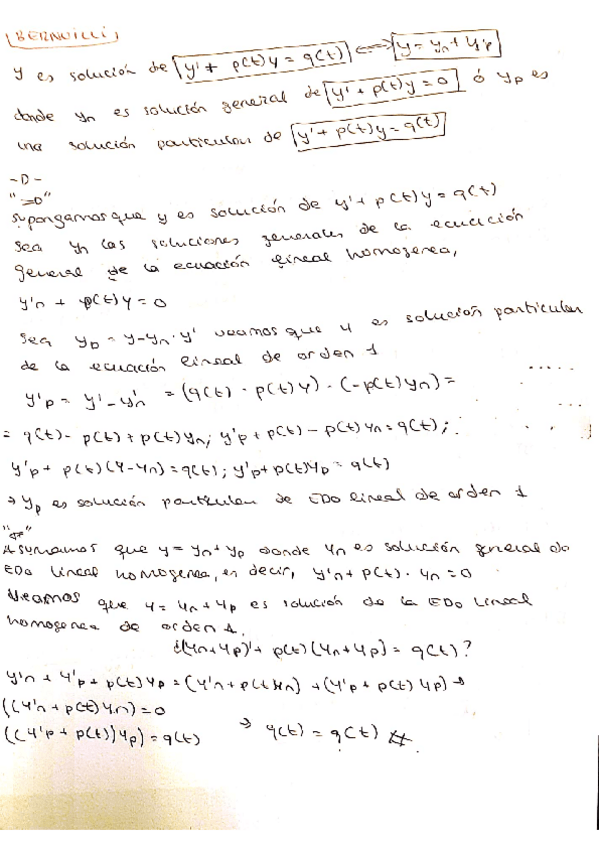 (BERNUILLI)
y es solución de y' + p(t)y = q(t) <=> y = yn + yp
donde yn es solución general de y' + p(t)y = 0 ó yp es
una solución particular de y' + p(t)y = q(t)
-D-
"=D"
Supongamos que y es solución de y' + p(t)y = q(t)
Sea yn las soluciones generales de la ecuación
general de la ecuación lineal homogenea,
y'n + p(t)y = 0
Sea yp = y-yn. y' veamos que y es solución particular
de la ecuación lineal de orden 1
y'p = y' - y'n = (q(t) - p(t)y) - (-p(t)yn) =
= q(t) - p(t) + p(t)yn; y'p + p(t) - p(t)yn = q(t);
y'p + p(t)(y-yn) = q(t); y'p + p(t)yp = q(t)
→ yp es solución particular de EDO lineal de orden 1
"⇐"
Asumamos que y = yn + yp donde yn es solución general de
EDO lineal homogenea, es decir, y'n + p(t). yn = 0
Veamos que y = yn + yp es solución de la EDO lineal
homogenea de orden 1.
¿(yn + yp)' + p(t)(yn + yp) = q(t)?
y'n + y'p + p(t)yp = (y'n + p(t)yn) + (y'p + p(t)yp) →
((y'n + p(t)yn) = 0
((y'p + p(t))yp) = q(t) → q(t) = q(t) #